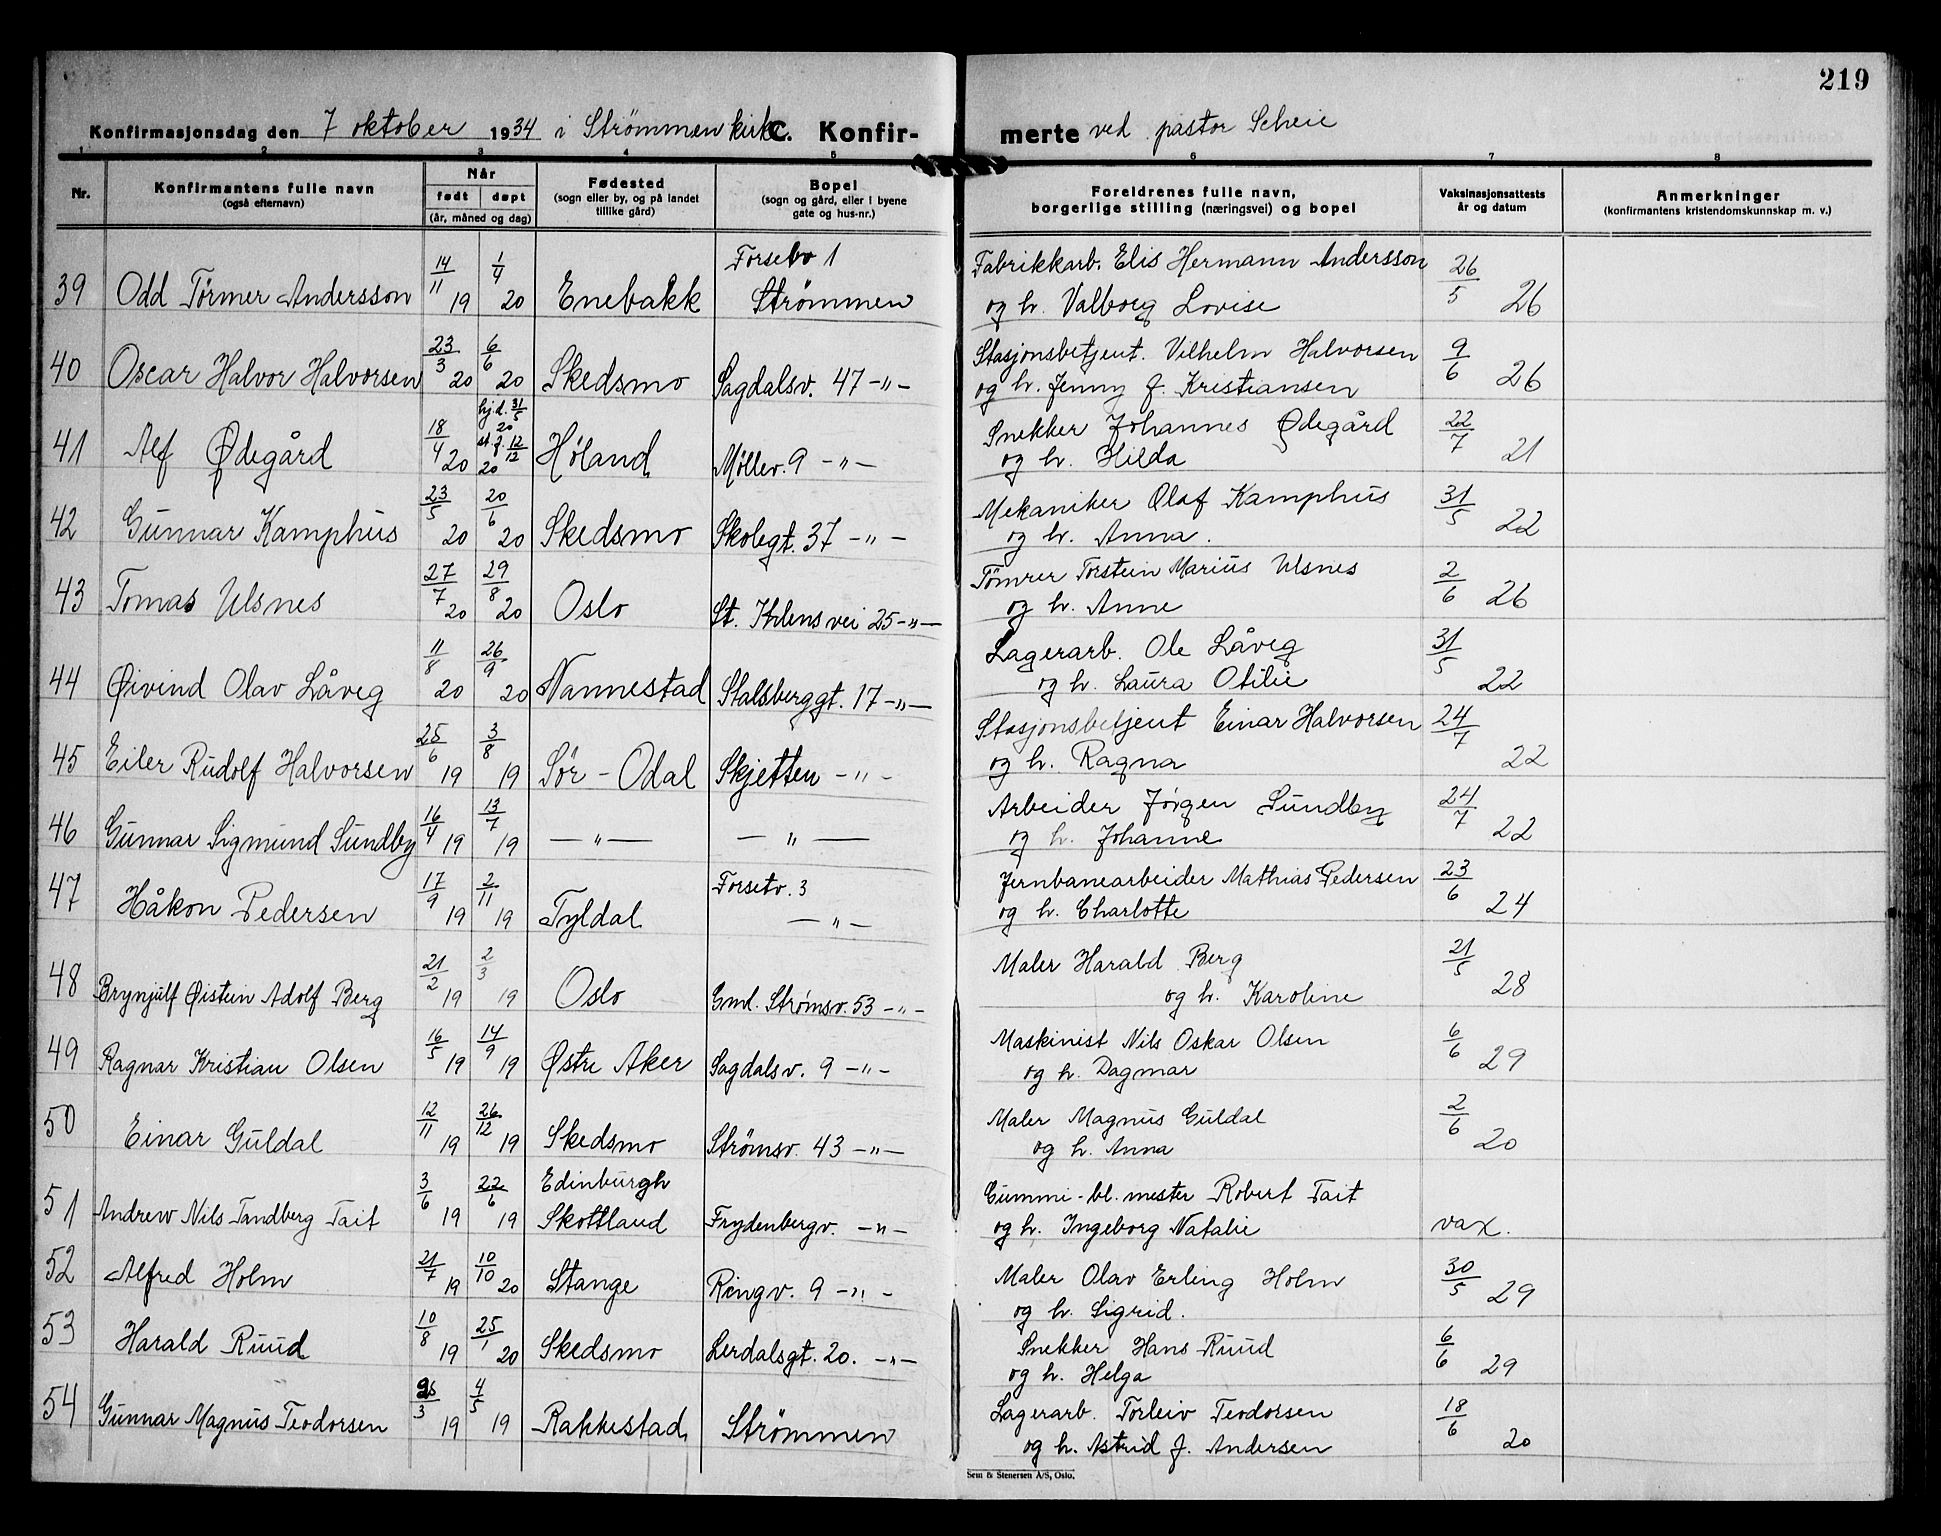 219
Konfirmasjonsdag den 7 oktober 1934 i Strömmen kirke C. Konfir- merte ved pastor Scheie
1 2 3 4 5 6 7 8
Nr. Konfirmantens fulle navn (også efternavn) Når født døpt (år, måned og dag) Fødested (sogn eller by, og på landet tillike gård) Bopel (sogn og gård, eller i byene gate og hus-nr.) Foreldrenes fulle navn, borgerlige stilling (næringsvei) og bopel Vaksinasjonsattests år og datum Anmerkninger (konfirmantens kristendomskunnskap m. v.)
39 Odd Tørmer Andersson 14/11 19 1/4 20 Enebakk Forsebv 1 Strömmen Fabrikkarb. Elis Hermann Andersson og h. Valborg Lovise 26/5 26
40 Oscar Halvor Halvorsen 23/3 20 6/6 20 Skedsmo Sagdalsv. 47 -"- Stasjonsbetjent. Vilhelm Halvorsen og h. Jenny f. Kristiansen 9/6 26
41 Alf Ødegård 18/4 20 hj.d. 31/5 20 st.f. 12/12 20 Høland Møllev. 9 -"- Snekker Johannes Ødegård og h. Hilda 22/7 21
42 Gunnar Kamphus 23/5 20 20/6 20 Skedsmo Skolegt. 37 -"- Mekaniker Olaf Kamphus og h. Anna. 31/5 22
43 Tomas Ulsnes 27/7 20 29/8 20 Oslo St. Ihlens vei 25 -"- Tömrer Torstein Marius Ulsnes og h. Anne 2/6 26
44 Øivind Olav Låveg 11/8 20 26/9 20 Nannestad Stalsberggt. 17 -"- Lagerarb. Ole Låveg og h. Laura Otilie 31/5 22
45 Eiler Rudolf Halvorsen 25/6 19 3/8 19 Sör-Odal Skjetten -"- Stasjonsbetjent Einar Halvorsen og h. Ragna 24/7 22
46 Gunnar Sigmund Sundby 16/4 19 13/7 19 -"- -"- Arbeider Jörgen Sundby og h. Johanne 24/7 22
47 Håkon Pedersen 17/9 19 2/11 19 Tyldal Forsetv. 3 -"- Jernbanearbeider Mathias Pedersen og h. Charlotte 23/6 24
48 Brynjulf Øistein Adolf Berg 21/2 19 2/3 19 Oslo Gml. Strömsv. 53 -"- Maler Harald Berg og h. Karoline 21/5 28
49 Ragnar Kristian Olsen 16/5 19 14/9 19 Østre Aker Sagdalsv. 9 -"- Maskinist Nils Oskar Olsen og h. Dagmar 6/6 29
50 Einar Guldal 12/11 19 26/12 19 Skedsmo Strömsv. 43 -"- Maler Magnus Guldal og h. Anna 2/6 20
51 Andrew Nils Tandberg Tait 3/6 19 22/6 19 Edinburgh Skottland Frydenbergv. -"- Gummi-bl. mester Robert Tait og h. Ingeborg Natalie vax.
52 Alfred Holm 21/7 19 10/10 20 Stange Ringv. 9 -"- Maler Olav Erling Holm og h. Sigrid. 30/5 29
53 Harald Ruud 10/8 19 25/1 20 Skedsmo Lerdalsgt. 20. -"- Snekker Hans Ruud og h. Helga 6/6 29
54 Gunnar Magnus Teodorsen /3 19 4/5 19 Rakkestad Strömmen Lagerarb. Torleiv Teodorsen og h. Astrid f. Andersen 18/6 20
Sem & Stenersen A/S, Oslo.